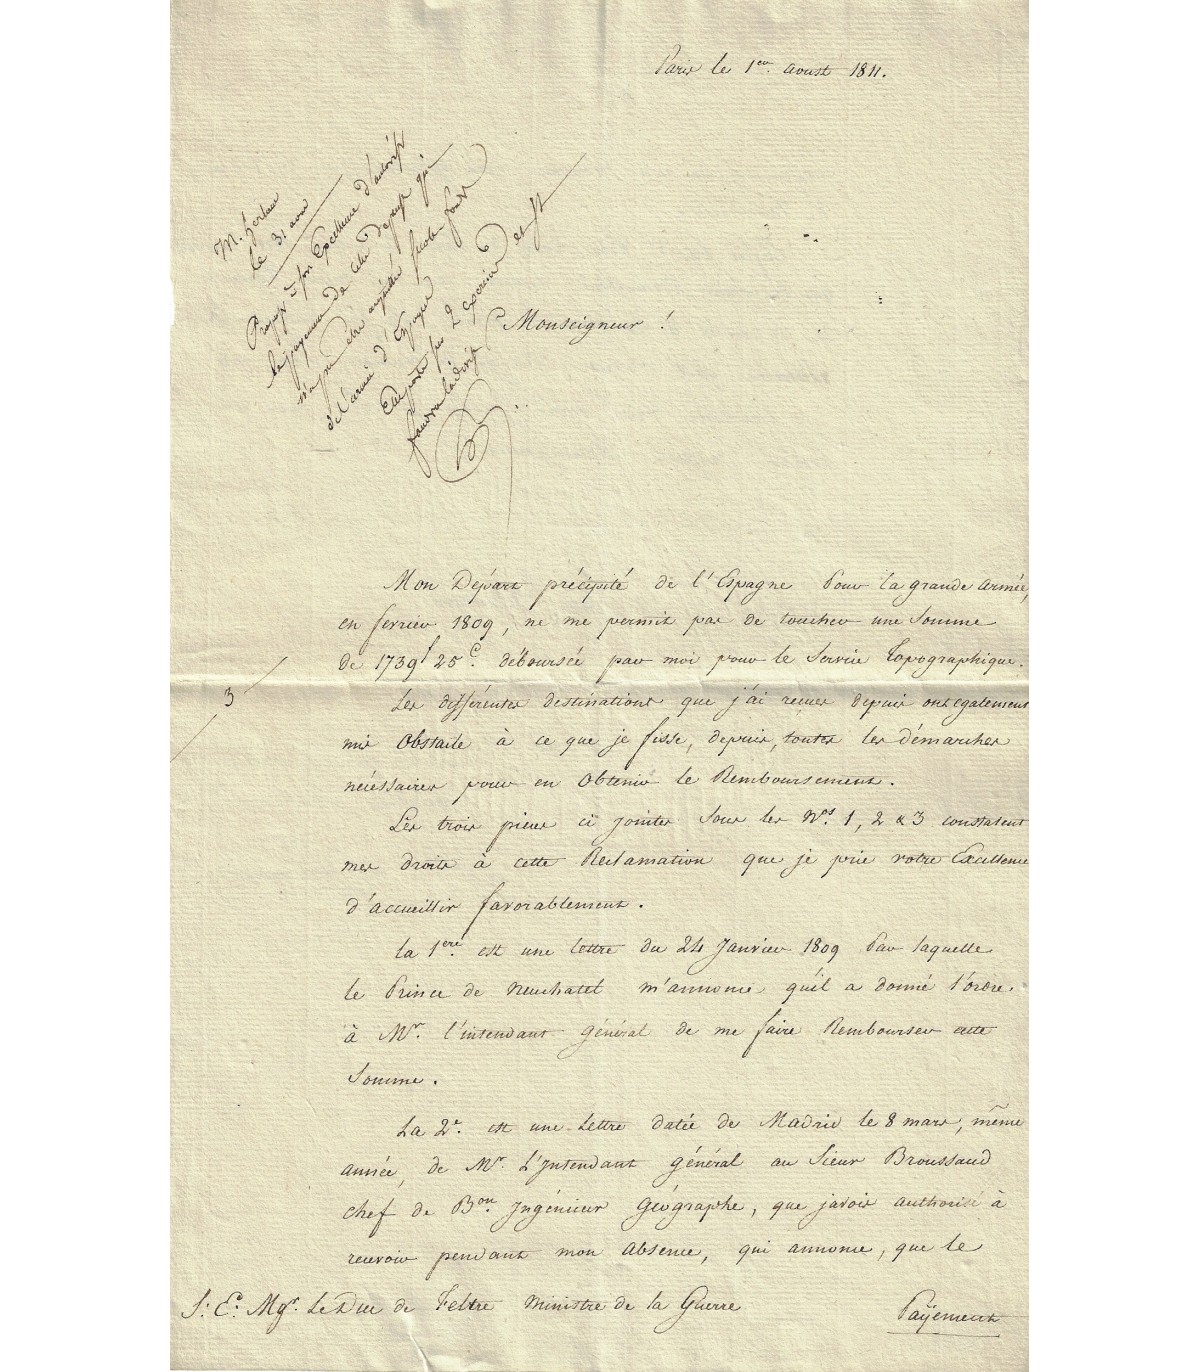 Paris le 1er. aoust 1811.
le 31
Son Excellence
de cette qui
de l'armée d'Espagne
Monseigneur !
Mon Départ précipité de l'Espagne Pour la grande armée,
en fevrier 1809, ne me permit pas de toucher une Somme
de 1739f 25c. déboursée par moi pour le Service Topographique.
3
Les différentes destinations que j'ai recues depuis ont également
mis Obstacle à ce que je fisse, depuis, toutes les démarches
nécessaires pour en Obtenir le Remboursement.
Les trois pieces ci jointes Sous les Nos. 1, 2 & 3 constatent
mes droits à cette Reclamation que je prie votre Excellence
d'accueillir favorablement.
la 1ere. est une lettre du 24 Janvier 1809 Par laquelle
le Prince de Neuchatel m'annonce qu'il a donné l'ordre.
à Mr. l'intendant général de me faire Rembourser cette
Somme.
La 2e. est une Lettre datée de Madrid le 8 mars, même
année, de Mr. L'Intendant général au Sieur Broussaud
chef de Bon. Ingénieur Géographe, que javois authorisé à
recevoir pendant mon Absence, qui annonce, que le
S: Ec. Mgr. Le Duc de Feltre Ministre de la Guerre
Païement